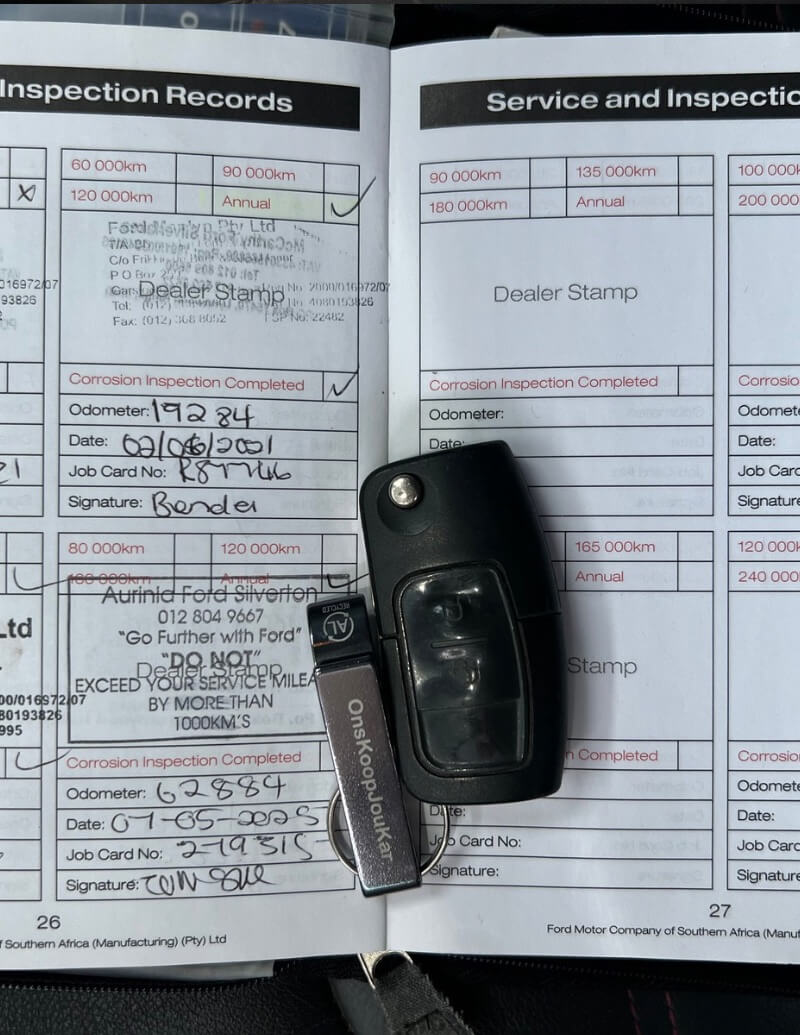 Inspection Records
60 000km
90 000km
120 000km
Annual
Ford
Pty Ltd
T/A
C/o
P O Box
Dealer Stamp
2000/016972/07
4080193826
Tel: (012)
Fax: (012) 368 8052
No: 22482
Corrosion Inspection Completed
Odometer: 19284
Date: 02/06/2021
Job Card No:
Signature: Bender
016972/07
93826
21
80 000km
120 000km
160 000km
Annual
Aurinia Ford Silverton
012 804 9667
"Go Further with Ford"
"DO NOT"
Dealer Stamp
EXCEED YOUR SERVICE MILEA
BY MORE THAN
1000KM'S
Ltd
00/016972/07
80193826
995
Corrosion Inspection Completed
Odometer: 62884
Date: 07-05-2025
Job Card No:
Signature:
26
f Southern Africa (Manufacturing) (Pty) Ltd
Service and Inspectio
90 000km
135 000km
180 000km
Annual
Dealer Stamp
Corrosion Inspection Completed
Odometer:
Date:
100 000
200 000
Corrosio
Odomete
Date:
Job Card
Signature
165 000km
Annual
Stamp
n Completed
Date:
Job Card No:
Signature:
120 000k
240 000
Corrosio
Odomete
Date:
Job Card
Signature
27
Ford Motor Company of Southern Africa (Manuf
RECYCLED
AL
OnsKoopJouKar